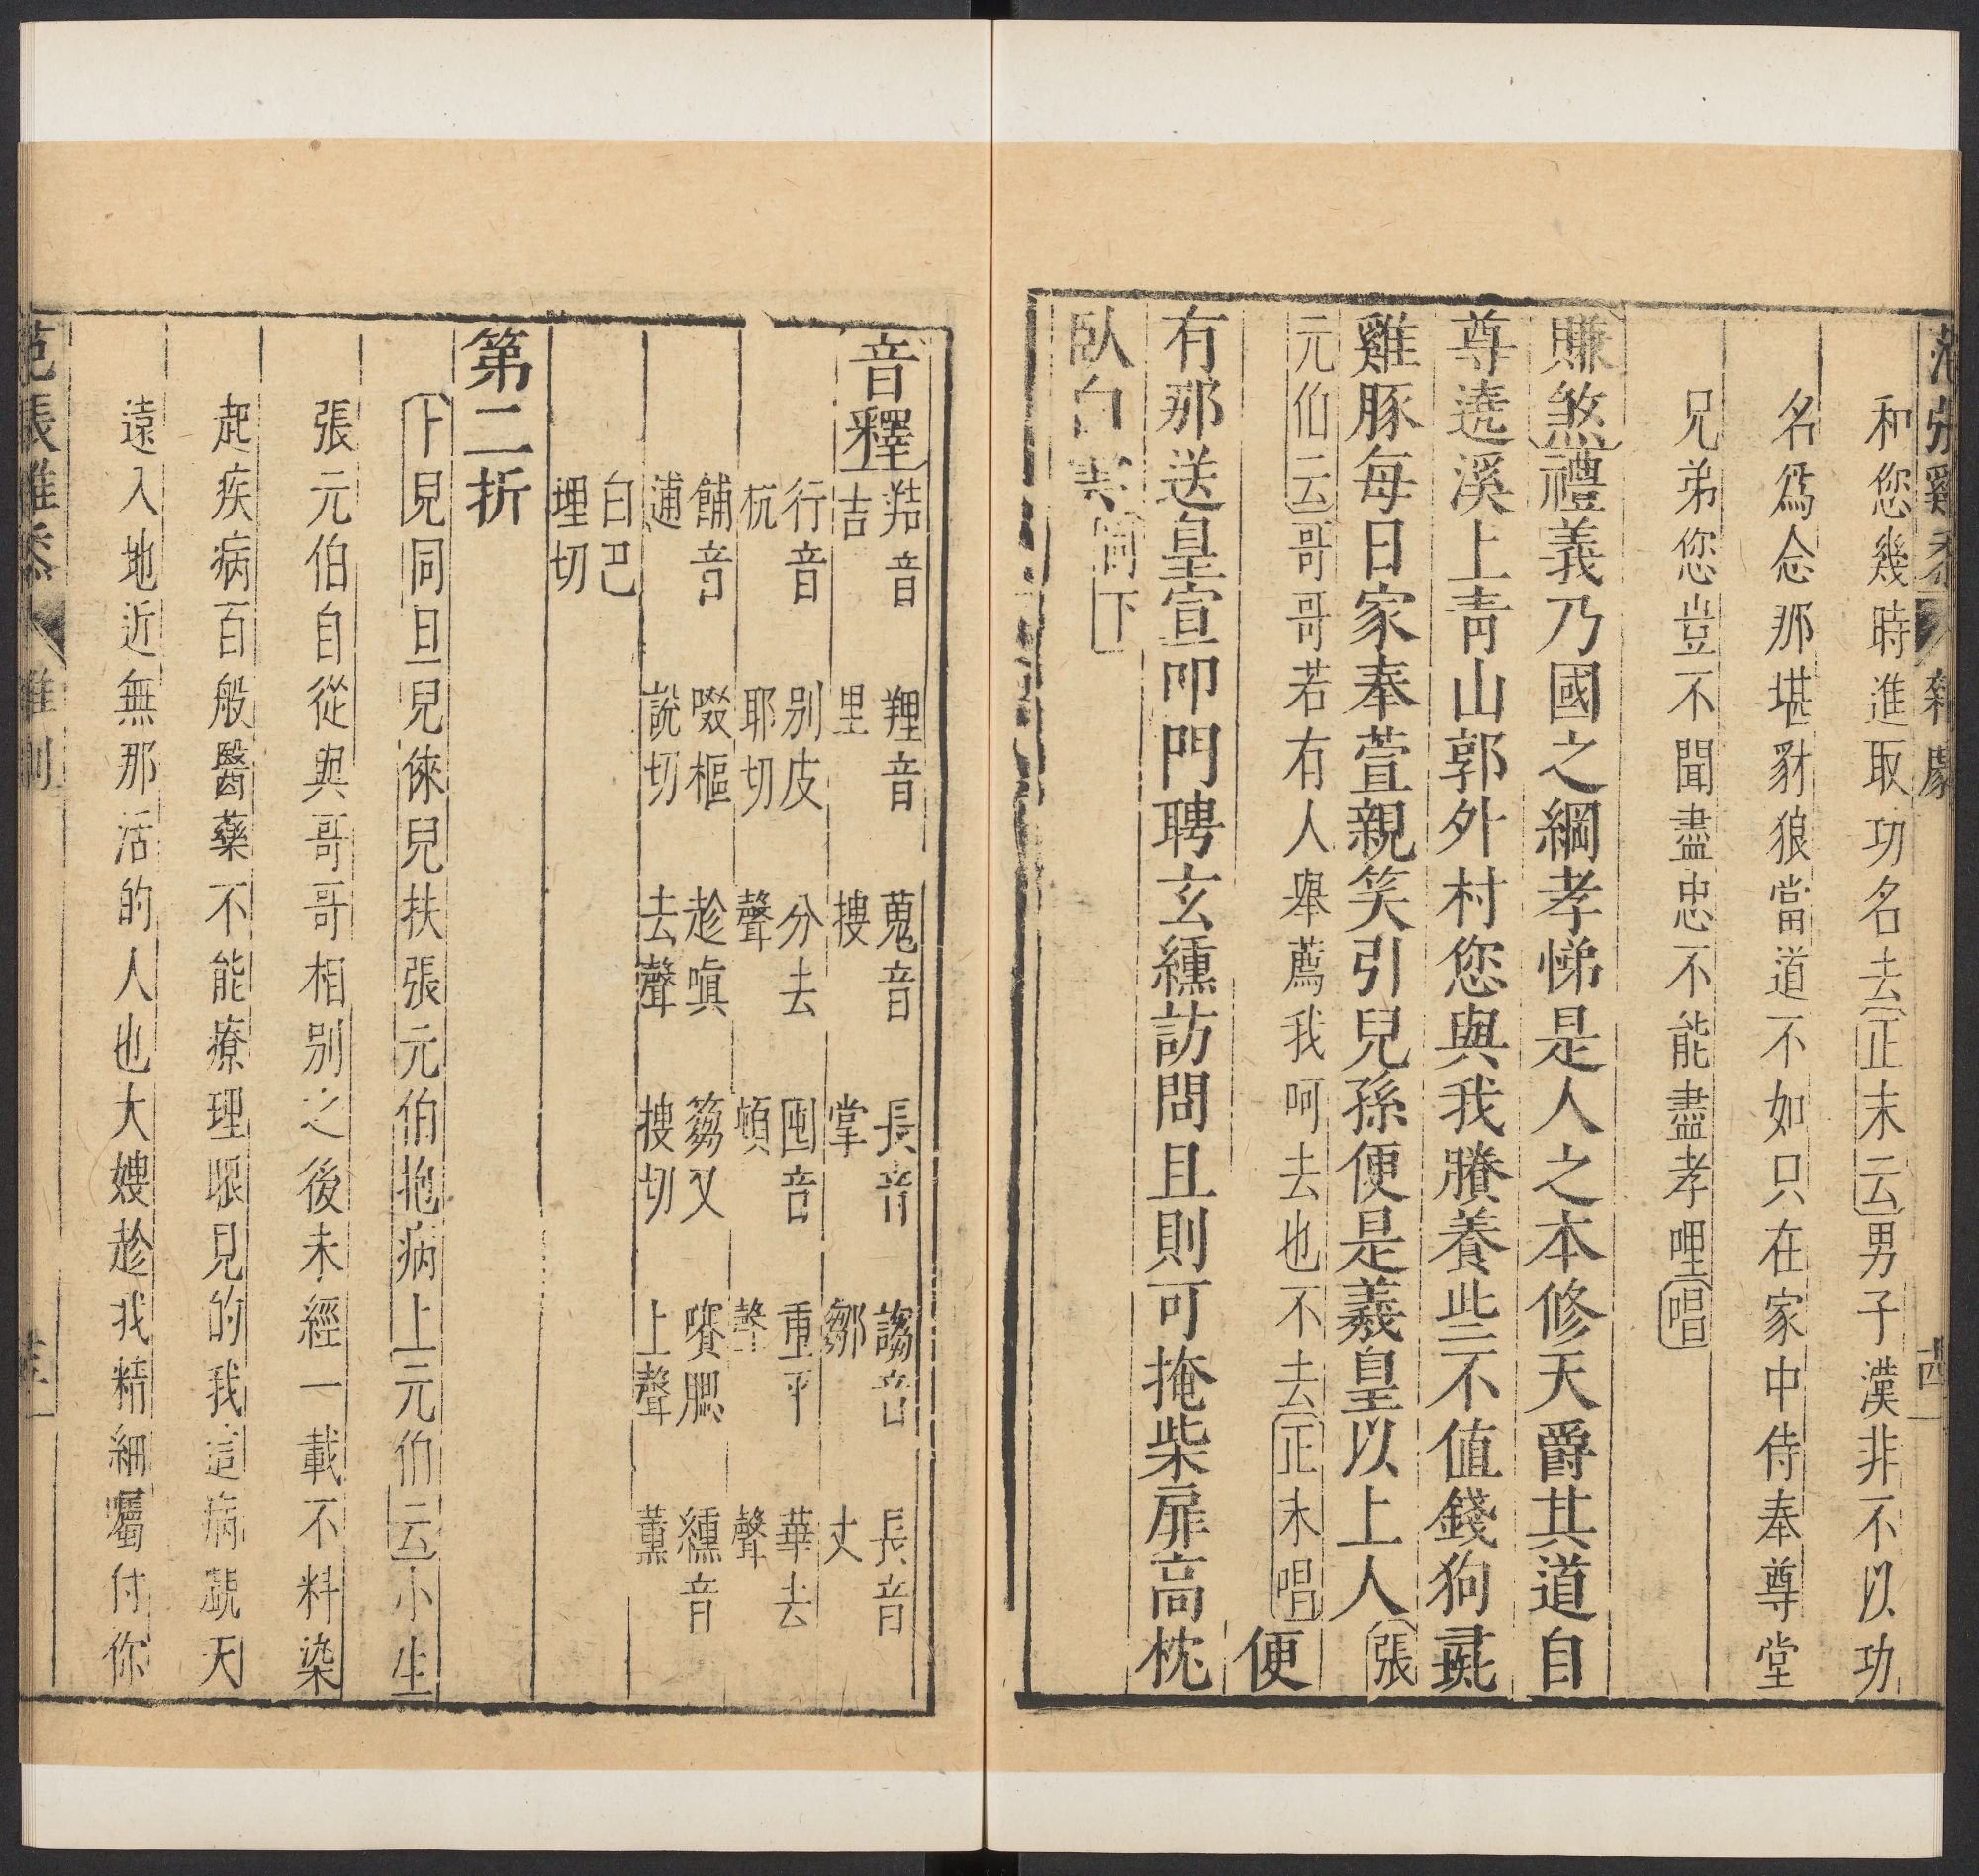 范張雞黍 雜劇 十四
和您幾時進取功名去正末云男子漢非不以功
名爲念那堪豺狼當道不如只在家中侍奉尊堂
兄弟您豈不聞盡忠不能盡孝哩唱
賺煞禮義乃國之綱孝悌是人之本修天爵其道自
尊遶溪上青山郭外村您與我賸養些不值錢狗彘
雞豚每日家奉萱親笑引兒孫便是羲皇以上人張
元伯云哥哥若有人舉薦我呵去也不去正末唱便
有那送皇宣叩門聘玄纁訪問且則可掩柴扉高枕
臥白雲同下
音釋
𦍩音吉 𦍲音里 蒐音搜 長音掌 謅音鄒 長音丈
行音杭 别皮耶切 分去聲 囤音頓 重平聲 華去聲
餔音逋 啜樞說切 趁嗔去聲 篘叉搜切 𩞄腮上聲 纁音薰
白巴埋切
第二折
卜兒同旦兒倈兒扶張元伯抱病上元伯云小生
張元伯自從與哥哥相别之後未經一載不料染
起疾病百般醫藥不能療理眼見的我這病覷天
遠入地近無那活的人也大嫂趁我精細囑付你
范張雞黍 雜劇